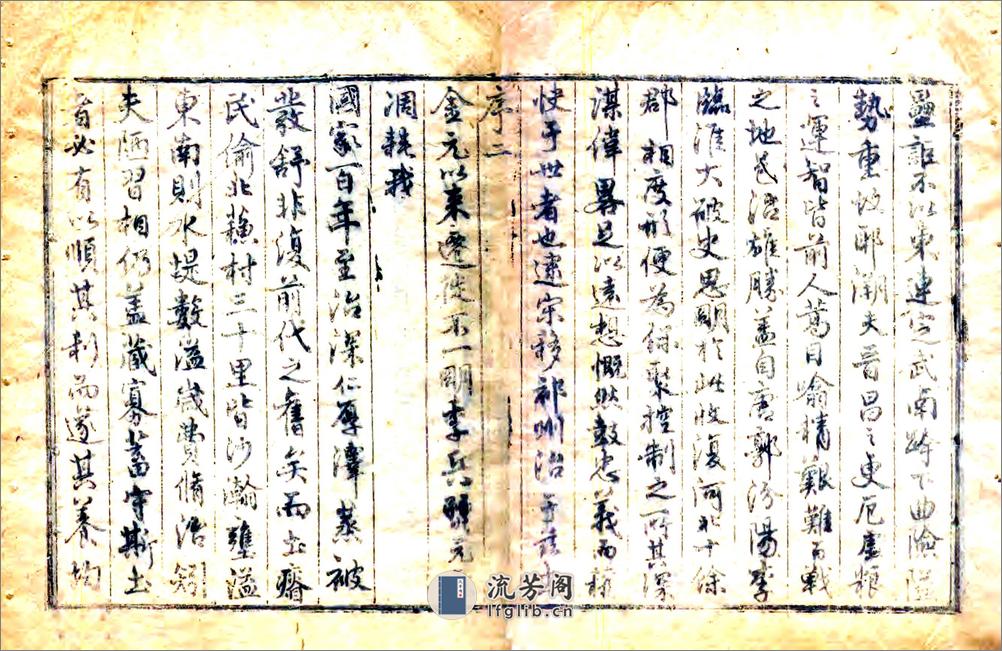 蠡詎不以東連定武南時下曲險隘
勢重彼耶潮夫晋昌之更厄盧粮
之運智皆前人蒿目俞精艱難而戰
之地也活雄勝盖自唐郭汾陽李
臨淮大破史思明於此收復河北十餘
郡相度形便為保聚控制之所其深
謀偉畧足以遠想慨然鼓忠義而
快于世者也逮宋移祁州治
序二
金元以来遷徙不一明季兵燹元
凋耗我
國家百年至治深仁厚澤蒸被
發舒非復前代之舊矣而土瘠
民偷北蘓村三十里皆沙瀚壅溢
東南則水堤數溢歲費脩治矧
夫陋習相仍盖藏寡蓄守斯土
者必有以順其利而遂其養均
流芳阁
lfglib.cn